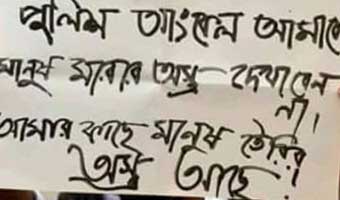 পুলিশ আংকেল আমাকে
মানুষ মারার অস্ত্র দেখাবেন
না।
আমার কাছে মানুষ তৈরির
অস্ত্র আছে!